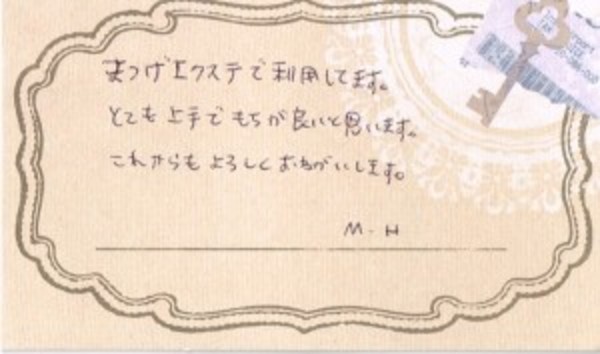 まつげエクステで利用してます。
とても上手でもちが良いと思います。
これからもよろしくおねがいします。
M.H